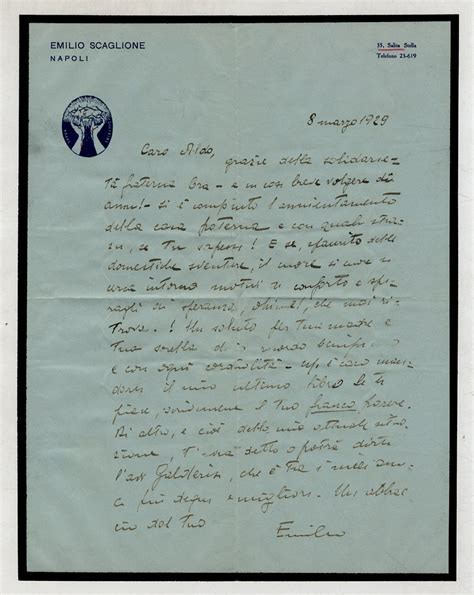 EMILIO SCAGLIONE
NAPOLI
35, Salita Stella
Telefono 23-619
8 marzo 1929
Caro Aldo, grazie della solidarie-
tà fraterna. Ora - e in così breve volgere di
anni! - si è compiuto l'annientamento
della casa paterna e con quali strazi
, se tu sapessi! E se, esaurito dalle
domestiche sventure, il cuore si move in
cerca intorno motivi di conforto e spi-
ragli di speranza, ohimé!, che mai ri-
trova.! Un saluto per tua madre e
tua sorella di ricordo sempre
e con ogni cordialità - caro man-
darei il mio ultimo libro. Se ti
piace, scrivimene il tuo franco parere.
Di altro, e cioè della mia attuale situa-
zione, t'avrà detto o potrà dirti
l'avv. che è tra i miei ami-
ci più degni e migliori. Un abbrac-
cio dal tuo
Emilio